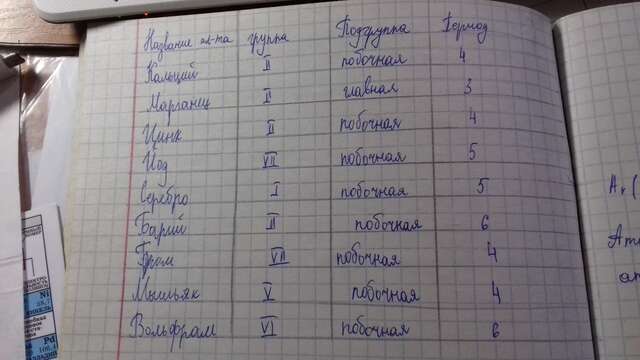 Название эл-та группа Подгруппа Период
Кальций II побочная 4
Марганец II главная 3
Цинк II побочная 4
Йод VII побочная 5
Серебро I побочная 5
Барий II побочная 6
Бром VII побочная 4
Мышьяк V побочная 4
Вольфрам VI побочная 6
Ar (
Ni
Pd